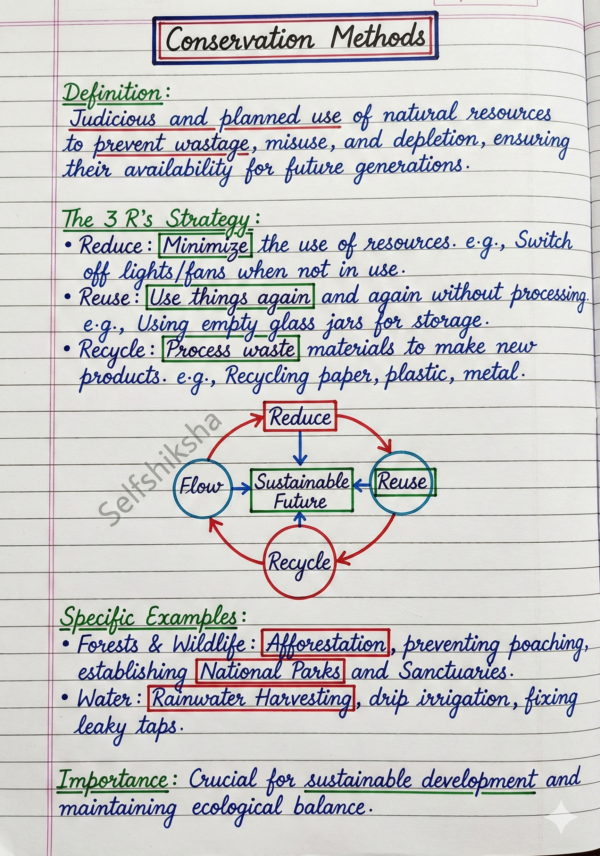 Conservation Methods
Definition:
Judicious and planned use of natural resources
to prevent wastage, misuse, and depletion, ensuring
their availability for future generations.
The 3 R's Strategy:
• Reduce: Minimize the use of resources. e.g., Switch
off lights/fans when not in use.
• Reuse: Use things again and again without processing.
e.g., Using empty glass jars for storage.
• Recycle: Process waste materials to make new
products. e.g., Recycling paper, plastic, metal.
Selfshiksha
Reduce
Flow
Sustainable
Future
Reuse
Recycle
Specific Examples:
• Forests & Wildlife: Afforestation, preventing poaching,
establishing National Parks and Sanctuaries.
• Water: Rainwater Harvesting, drip irrigation, fixing
leaky taps.
Importance: Crucial for sustainable development and
maintaining ecological balance.